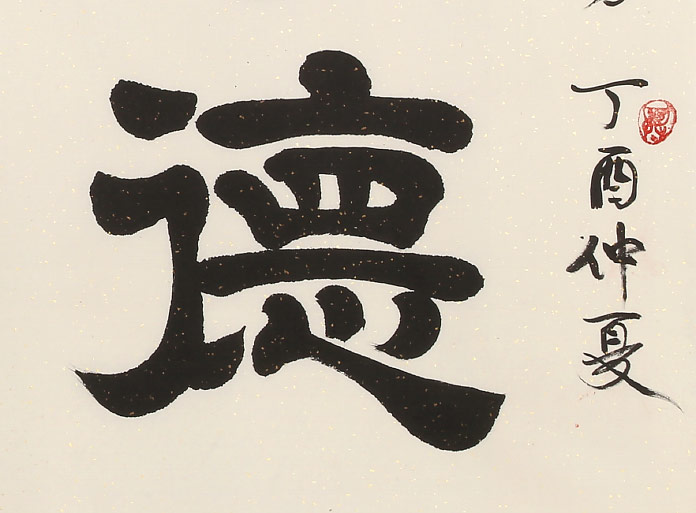 德
丁酉仲夏